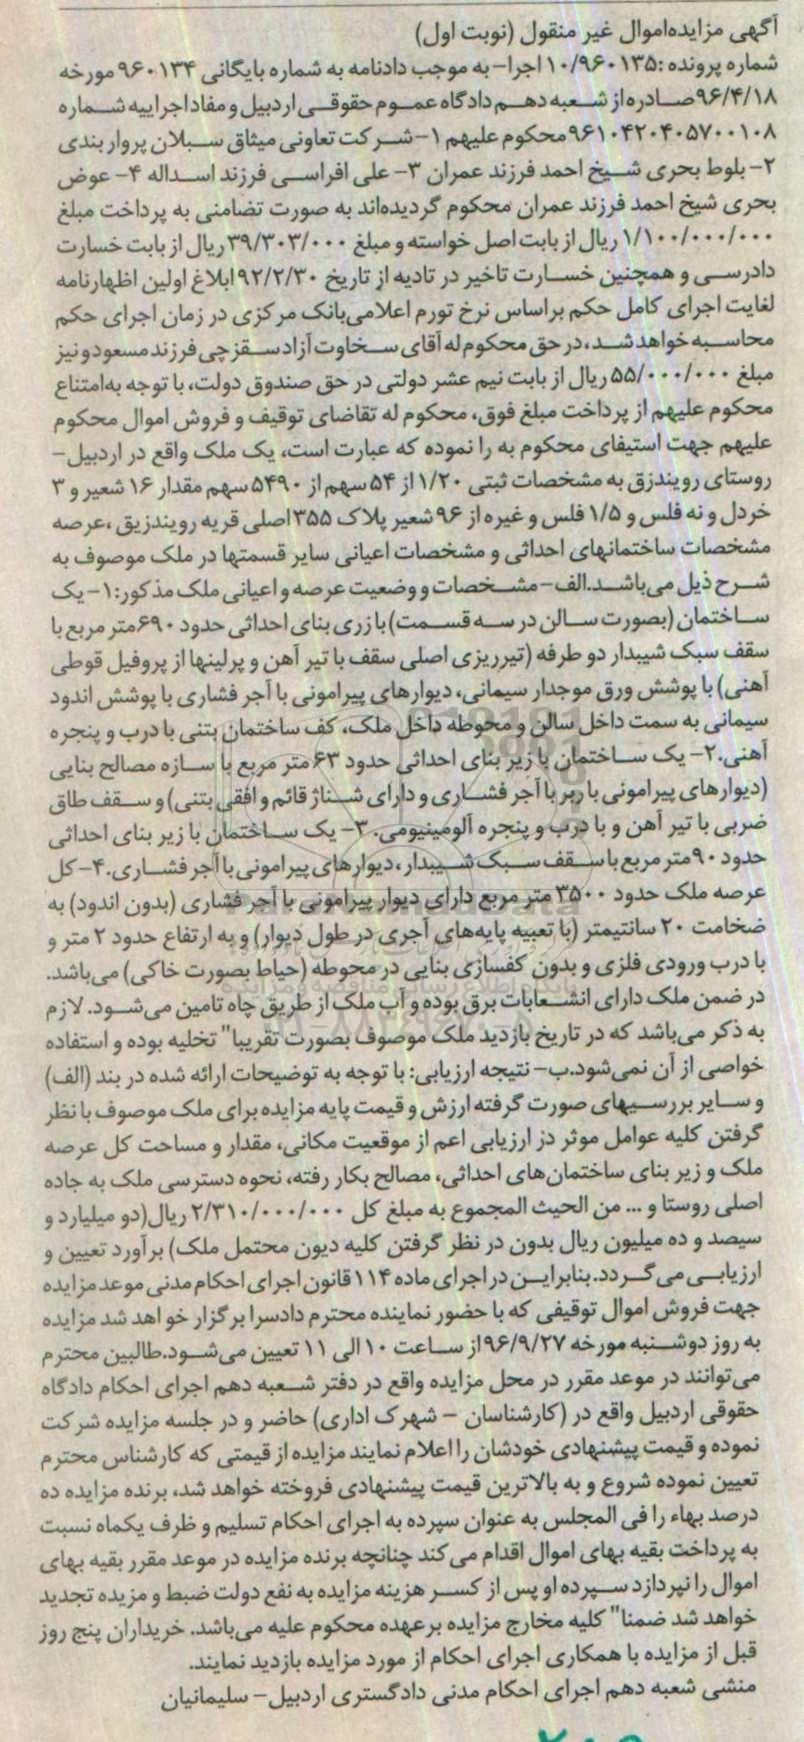 آگهی مزایده‌اموال غیر منقول (نوبت اول)
شماره پرونده :۱۰/۹۶۰۱۳۵ اجرا- به موجب دادنامه به شماره بایگانی ۹۶۰۱۳۴ مورخه
۹۶/۴/۱۸صادره از شعبه دهم دادگاه عموم حقوقی اردبیل و مفاد اجراییه شماره
۹۶۱۰۴۲۰۴۰۵۷۰۰۱۰۸محکوم علیهم ۱-شرکت تعاونی میثاق سبلان پروار بندی
۲- بلوط بحری شیخ احمد فرزند عمران ۳- علی افراسی فرزند اسداله ۴- عوض
بحری شیخ احمد فرزند عمران محکوم گردیده‌اند به صورت تضامنی به پرداخت مبلغ
۱/۱۰۰/۰۰۰/۰۰۰ ریال از بابت اصل خواسته و مبلغ ۳۹/۳۰۳/۰۰۰ ریال از بابت خسارت
دادرسی و همچنین خسارت تاخیر در تادیه از تاریخ ۹۲/۲/۳۰ ابلاغ اولین اظهارنامه
لغایت اجرای کامل حکم براساس نرخ تورم اعلامی‌بانک مرکزی در زمان اجرای حکم
محاسبه خواهد شد، در حق محکوم له آقای سخاوت آزاد سقزچی فرزند مسعود و نیز
مبلغ ۵۵/۰۰۰/۰۰۰ ریال از بابت نیم عشر دولتی در حق صندوق دولت، با توجه به‌امتناع
محکوم علیهم از پرداخت مبلغ فوق، محکوم له تقاضای توقیف و فروش اموال محکوم
علیهم جهت استیفای محکوم به را نموده که عبارت است، یک ملک واقع در اردبیل-
روستای رویندزق به مشخصات ثبتی ۱/۲۰ از ۵۴ سهم از ۵۴۹۰ سهم مقدار ۱۶ شعیر و ۳
خردل و نه فلس و ۱/۵ فلس و غیره از ۹۶ شعیر پلاک ۳۵۵ اصلی قریه رویندزیق ،عرصه
مشخصات ساختمانهای احداثی و مشخصات اعیانی سایر قسمتها در ملک موصوف به
شرح ذیل می‌باشد.الف- مشخصات و وضعیت عرصه و اعیانی ملک مذکور:۱- یک
ساختمان (بصورت سالن در سه قسمت) با زری بنای احداثی حدود ۶۹۰متر مربع با
سقف سبک شیبدار دو طرفه (تیرریزی اصلی سقف با تیر آهن و پرلینها از پروفیل قوطی
آهنی) با پوشش ورق موجدار سیمانی، دیوارهای پیرامونی با آجر فشاری با پوشش اندود
سیمانی به سمت داخل سالن و محوطه داخل ملک، کف ساختمان بتنی با درب و پنجره
آهنی.۲- یک ساختمان با زیر بنای احداثی حدود ۶۳ متر مربع با سازه مصالح بنایی
(دیوارهای پیرامونی با ربر با آجر فشاری و دارای شناژ قائم و افقی بتنی) و سقف طاق
ضربی با تیر آهن و با درب و پنجره آلومینیومی. ۳- یک ساختمان با زیر بنای احداثی
حدود ۹۰متر مربع با سقف سبک شیبدار، دیوارهای پیرامونی با آجر فشاری.۴- کل
عرصه ملک حدود ۳۵۰۰ متر مربع دارای دیوار پیرامونی با آجر فشاری (بدون اندود) به
ضخامت ۲۰ سانتیمتر (با تعبیه پایه‌های آجری در طول دیوار) و به ارتفاع حدود ۲ متر و
با درب ورودی فلزی و بدون کفسازی بنایی در محوطه (حیاط بصورت خاکی) می‌باشد.
در ضمن ملک دارای انشعابات برق بوده و آب ملک از طریق چاه تامین می‌شود. لازم
به ذکر می‌باشد که در تاریخ بازدید ملک موصوف بصورت تقریبا" تخلیه بوده و استفاده
خواصی از آن نمی‌شود.ب- نتیجه ارزیابی: با توجه به توضیحات ارائه شده در بند (الف)
و سایر بررسیهای صورت گرفته ارزش و قیمت پایه مزایده برای ملک موصوف با نظر
گرفتن کلیه عوامل موثر دز ارزیابی اعم از موقعیت مکانی، مقدار و مساحت کل عرصه
ملک و زیر بنای ساختمان‌های احداثی، مصالح بکار رفته، نحوه دسترسی ملک به جاده
اصلی روستا و ... من الحیث المجموع به مبلغ کل ۲/۳۱۰/۰۰۰/۰۰۰ ریال(دو میلیارد و
سیصد و ده میلیون ریال بدون در نظر گرفتن کلیه دیون محتمل ملک) برآورد تعیین و
ارزیابی می‌گردد.بنابراین در اجرای ماده ۱۱۴ قانون اجرای احکام مدنی موعد مزایده
جهت فروش اموال توقیفی که با حضور نماینده محترم دادسرا برگزار خواهد شد مزایده
به روز دوشنبه مورخه ۹۶/۹/۲۷ از ساعت ۱۰ الی ۱۱ تعیین می‌شود.طالبین محترم
می‌توانند در موعد مقرر در محل مزایده واقع در دفتر شعبه دهم اجرای احکام دادگاه
حقوقی اردبیل واقع در (کارشناسان - شهرک اداری) حاضر و در جلسه مزایده شرکت
نموده و قیمت پیشنهادی خودشان را اعلام نمایند مزایده از قیمتی که کارشناس محترم
تعیین نموده شروع و به بالاترین قیمت پیشنهادی فروخته خواهد شد، برنده مزایده ده
درصد بهاء را فی المجلس به عنوان سپرده به اجرای احکام تسلیم و ظرف یکماه نسبت
به پرداخت بقیه بهای اموال اقدام می‌کند چنانچه برنده مزایده در موعد مقرر بقیه بهای
اموال را نپردازد سپرده او پس از کسر هزینه مزایده به نفع دولت ضبط و مزیده تجدید
خواهد شد ضمنا" کلیه مخارج مزایده برعهده محکوم علیه می‌باشد. خریداران پنج روز
قبل از مزایده با همکاری اجرای احکام از مورد مزایده بازدید نمایند.
منشی شعبه دهم اجرای احکام مدنی دادگستری اردبیل- سلیمانیان